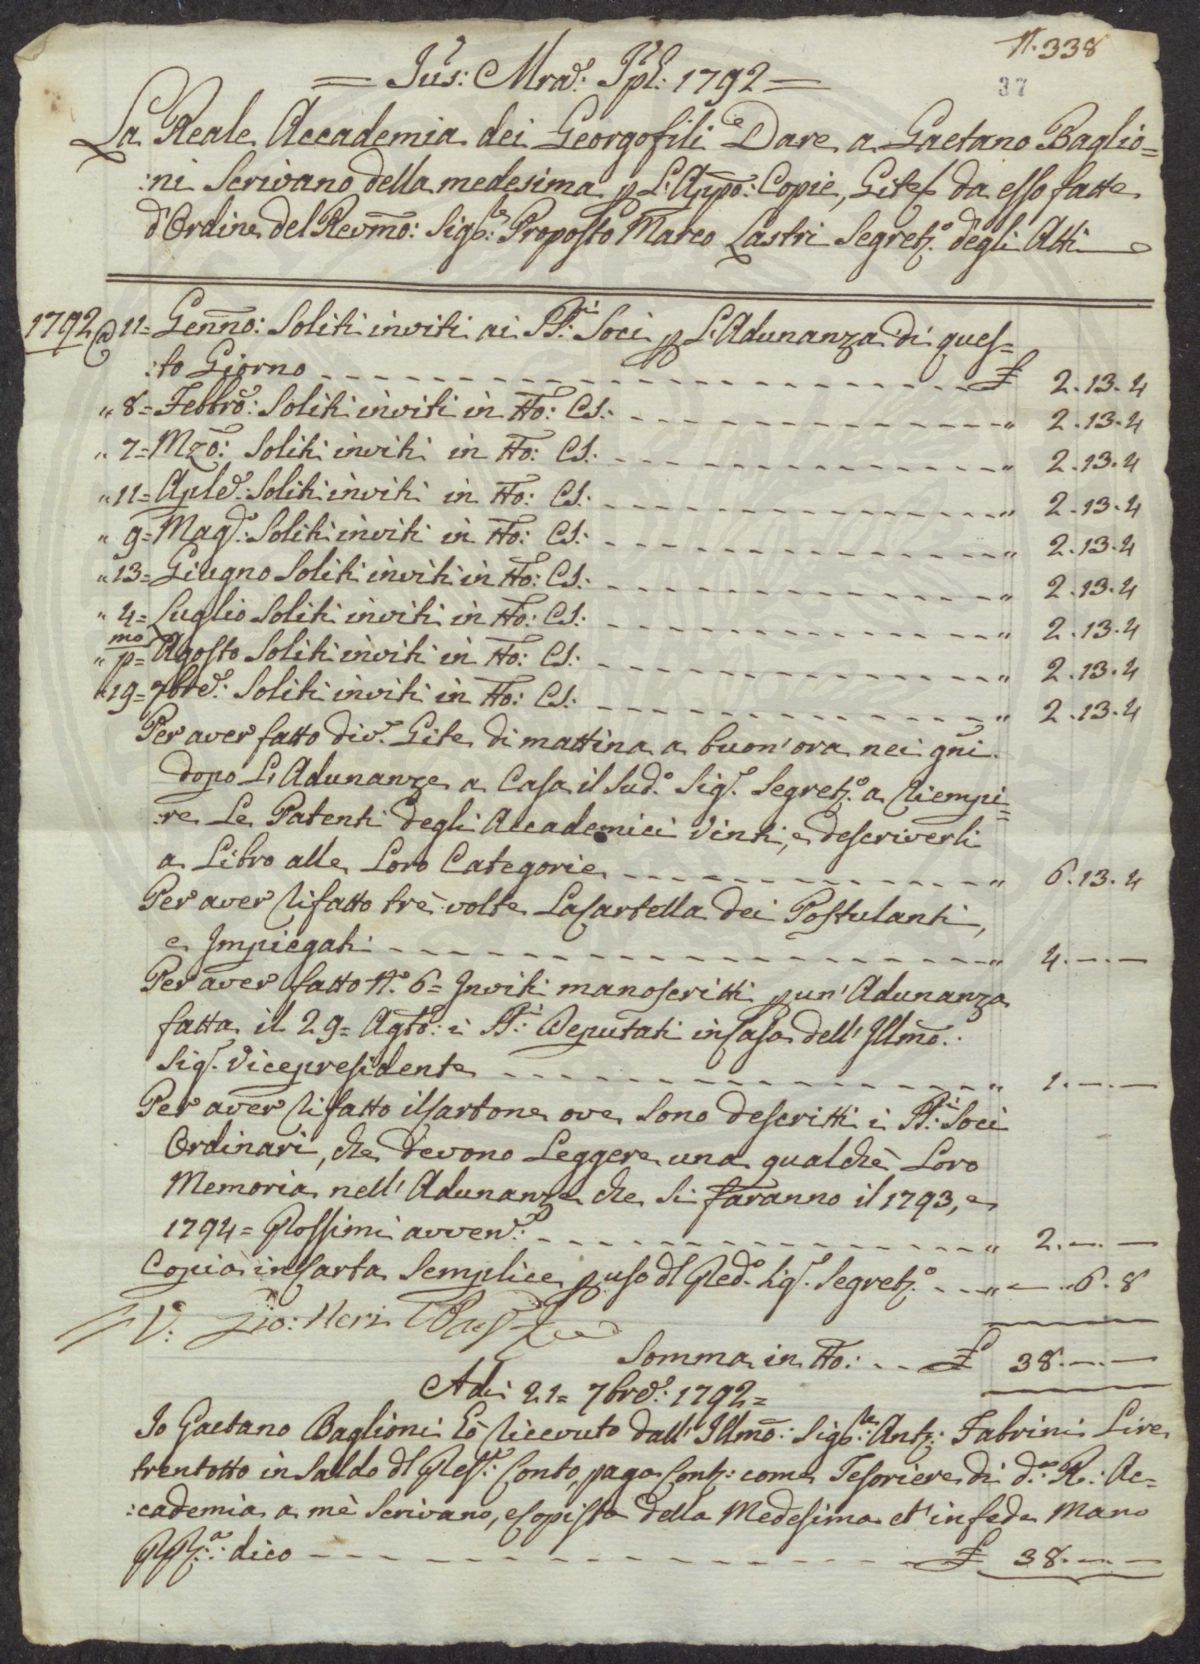 N. 338
37
= Jus: Mrad: Ppl: 1792 =
La Reale Accademia dei Georgofili Dare a Gaetano Baglio=
:ni Scrivano della medesima p L'App̄o: Copie, Gite da esso fatte
d'Ordine del Revm̄o: Sigre: Proposto Marco Lastri Segretr.o degli Atti
1792 @ 11= Genn̄o: Soliti inviti ai SSi: Soci p L'Adunanza di ques=
:to Giorno £ 2.13.4
" 8= Febbro: Soliti inviti in tto: CS: " 2.13.4
" 7= Mzō: Soliti inviti in tto: CS: " 2.13.4
" 11= Aple: Soliti inviti in tto: CS: " 2.13.4
" 9= Mag.o: Soliti inviti in tto: CS: " 2.13.4
" 13= Giugno Soliti inviti in tto: CS: " 2.13.4
" 4= Luglio Soliti inviti in tto: CS: " 2.13.4
" pmo= Agosto Soliti inviti in tto: CS: " 2.13.4
" 19= 7bre: Soliti inviti in tto: CS: " 2.13.4
Per aver fatto div.e Gite di mattina a buon'ora nei gn̄i
dopo L'Adunanze a Casa il Sud.o Sig.r Segretr.o a riempi=
:re Le Patenti degli Accademici Vinti, e descriverli
a Libro alle Loro Categorie " 6.13.4
Per aver rifatto trè volte La Cartella dei Postulanti,
e Impiegati " 4.—.—
Per aver fatto N.o 6= Inviti manoscritti p un'Adunanza
fatta il 29= Agto: i SSi: Deputati in Casa dell'Illmō:
Sig.r Vicepresidente " 1.—.—
Per aver rifatto il Cartone ove Sono descritti i SSi: Soci
Ordinari, che devono Leggere una qualchè Loro
Memoria nell'Adunanze che si faranno il 1793, e
1794= Prossimi avven.e: " 2.—.—
Copia in Carta Semplice p uso dl Pred.o Sig.r Segretr.o " —.6.8
V: Gio: Neri
Somma in tto: £ 38.—.—
Adi 21= 7bre: 1792=
Io Gaetano Baglioni hò ricevuto dall'Illmō: Sigre: Ant.o: Fabrini Lire
trentotto in Saldo dl Pres.te: Conto, paga Cont.i: come Tesoriere di d.a R.: Ac=
:cademia a mè Scrivano, e Copista della Medesima et in fede Mano
PPr.a: dico £ 38.—.—